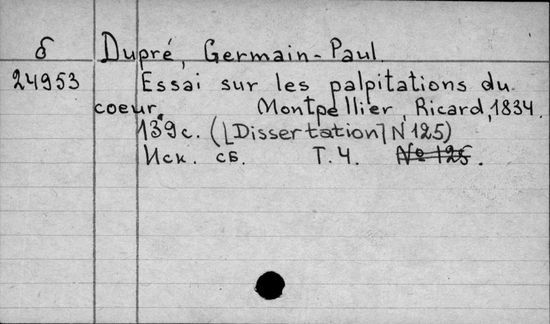 б Dupré, Germain-Paul.
24953 Essai sur les palpitations du
coeur. Montpellier, Ricard, 1834.
139 с. ([Dissertation] N 125)
Иск. сб. Т. 4. № 125.